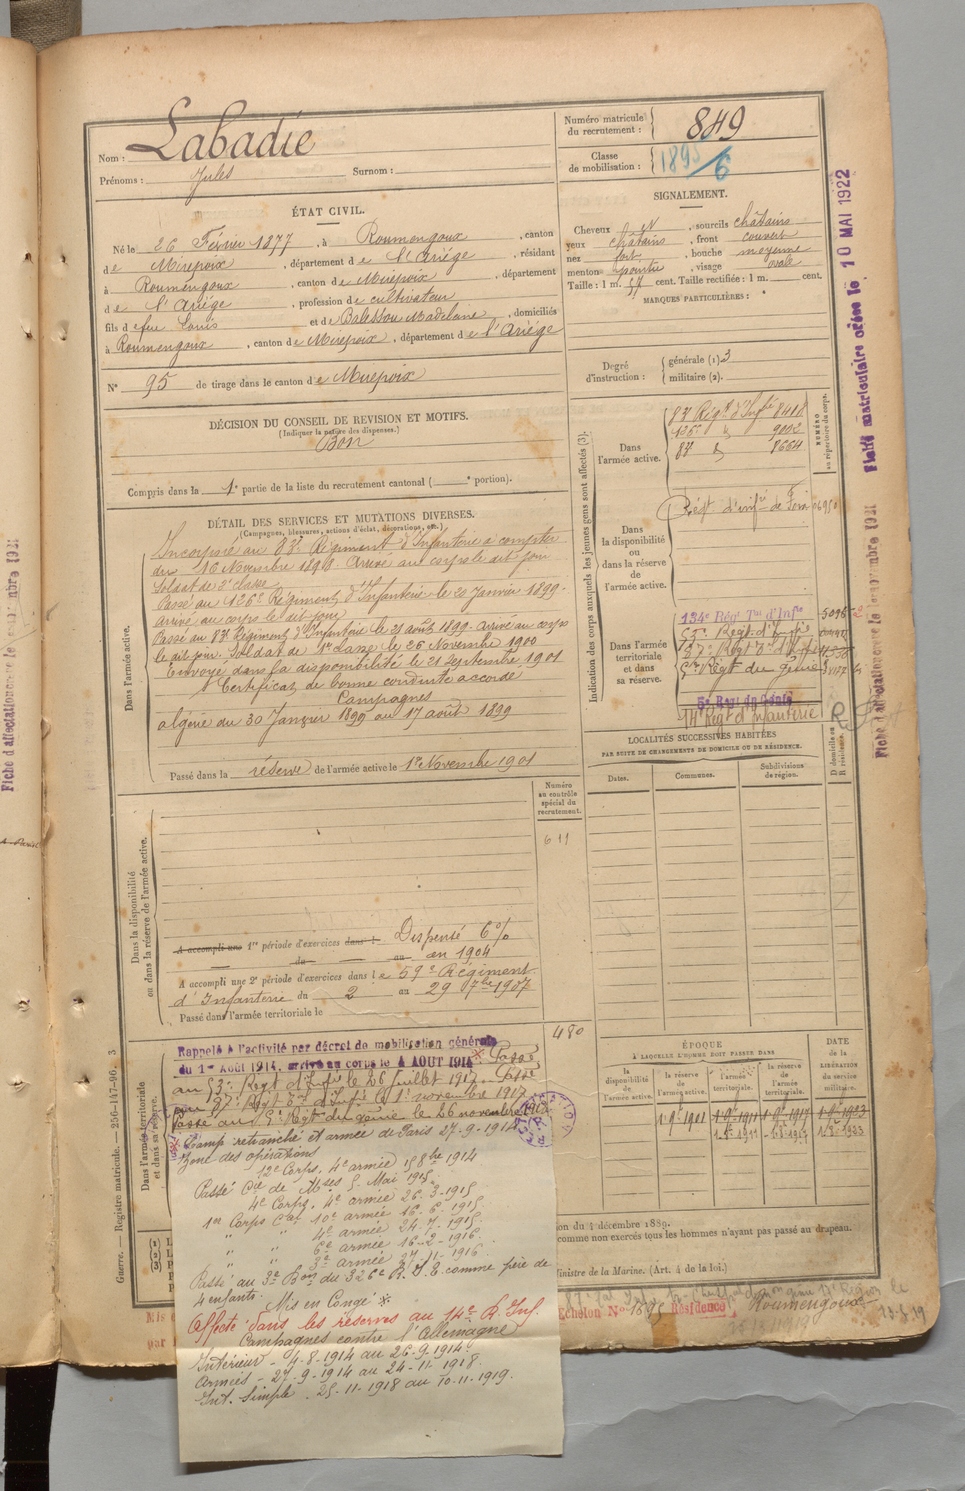 Nom : Labadie
Prénoms : Jules Surnom :
Numéro matricule du recrutement : 849
Classe de mobilisation : 1895/6
ÉTAT CIVIL.
Né le 26 Février 1877, à Roumengoux, canton
de Mirepoix, département de l'Ariége, résidant
à Roumengoux, canton de Mirepoix, département
de l'Ariége, profession de cultivateur
fils de feu Louis et de Balessou Madelaine, domiciliés
à Roumengoux, canton de Mirepoix, département de l'Ariége
N° 95 de tirage dans le canton de Mirepoix
SIGNALEMENT.
Cheveux , sourcils châtains
yeux châtains, front couvert
nez fort, bouche moyenne
menton pointu, visage ovale
Taille : 1 m. 57 cent. Taille rectifiée : 1 m. cent.
MARQUES PARTICULIÈRES :
Degré d'instruction : générale (1) 3
militaire (2).
DÉCISION DU CONSEIL DE REVISION ET MOTIFS.
(Indiquer la nature des dispenses.)
Bon
Compris dans la 1e partie de la liste du recrutement cantonal ( e portion).
DÉTAIL DES SERVICES ET MUTATIONS DIVERSES.
(Campagnes, blessures, actions d'éclat, décorations, etc.)
Dans l'armée active.
Incorporé au 83e Régiment d'Infanterie à compter
du 16 Novembre 1898. Arrivé au corps le dit jour
Soldat de 2e classe
Passé au 126e Régiment d'Infanterie le 20 Janvier 1899.
Arrivé au corps le dit jour
Passé au 83e Régiment d'Infanterie le 21 août 1899. Arrivé au corps
le dit jour. Soldat de 1re classe le 26 Novembre 1900
Envoyé dans la disponibilité le 21 Septembre 1901
Certificat de bonne conduite accordé
Campagnes
Algérie du 30 Janvier 1899 au 17 août 1899
Passé dans la réserve de l'armée active le 1er Novembre 1901
Indication des corps auxquels les jeunes gens sont affectés (3).
NUMÉRO au répertoire du corps.
Dans l'armée active.
83e Régt d'Infie 8418
126e " 9002
83e " 8664
Dans la disponibilité ou dans la réserve de l'armée active.
Régt d'infie de Foix 04950
Dans l'armée territoriale et dans sa réserve.
134e Régt Tal d'Infie 5096
Régt d'Infie
Régt d'Infie
5e Régt du Génie
5e Régt du Génie
14e Régt d'Infanterie
LOCALITÉS SUCCESSIVES HABITÉES
PAR SUITE DE CHANGEMENTS DE DOMICILE OU DE RÉSIDENCE.
D domicile ou R résidence.
Dates. Communes. Subdivisions de région.
Numéro au contrôle spécial du recrutement.
611
Dans la disponibilité ou dans la réserve de l'armée active.
A accompli une 1re période d'exercices dans l Dispensé 6%
du au en 1904
A accompli une 2e période d'exercices dans le 59e Régiment
d'Infanterie du 2 au 29 7bre 1907
Passé dans l'armée territoriale le
480
Dans l'armée territoriale et dans sa réserve.
Rappelé à l'activité par décret de mobilisation générale
du 1er Août 1914, arrivé au corps le 4 AOUT 1914 Passé
au 53e Régt d'Infie le 26 juillet 1917. Passé
au 97e Régt d'Infie le 1er novembre 1917
Passé au 5e Régt du génie le 26 novembre
Camp retranché et armée de Paris 27-9-1914
Zone des opérations
12e Corps, 4e armée 15 8bre 1914
Passé Cie de Mses 5 Mai 1915
4e Corps, 4e armée 26-3-1915
1er Corps Cal 10e armée 16-6-1915
" " 4e armée 24-7-1915
" " 6e armée 16-2-1916
" " 3e armée 27-11-1916
Passé au 3e Bon du 326e R.I.T. comme père de
4 enfants. Mis en Congé
Affecté dans les réserves au 14e R. Inf.
Campagnes contre l'Allemagne
Intérieur - 4-8-1914 au 26-9-1914.
Armées - 27-9-1914 au 24-11-1918.
Int. Simple. 25-11-1918 au 10-11-1919.
ÉPOQUE
À LAQUELLE L'HOMME DOIT PASSER DANS
la disponibilité de l'armée active. la réserve de l'armée active. l'armée territoriale. la réserve de l'armée territoriale.
DATE de la LIBÉRATION du service militaire.
on du 4 décembre 1889.
comme non exercés tous les hommes n'ayant pas passé au drapeau.
inistre de la Marine. (Art. 4 de la loi.)
Echelon N° 1595 Résidence Roumengoux
RECTIFICATION
Guerre. — Registre matricule. — 256-147-96. 3
Fiche matriculaire créée le 10 MAI 1922
Fiche d'affectation créée le novembre 1921
Fiche d'affectation